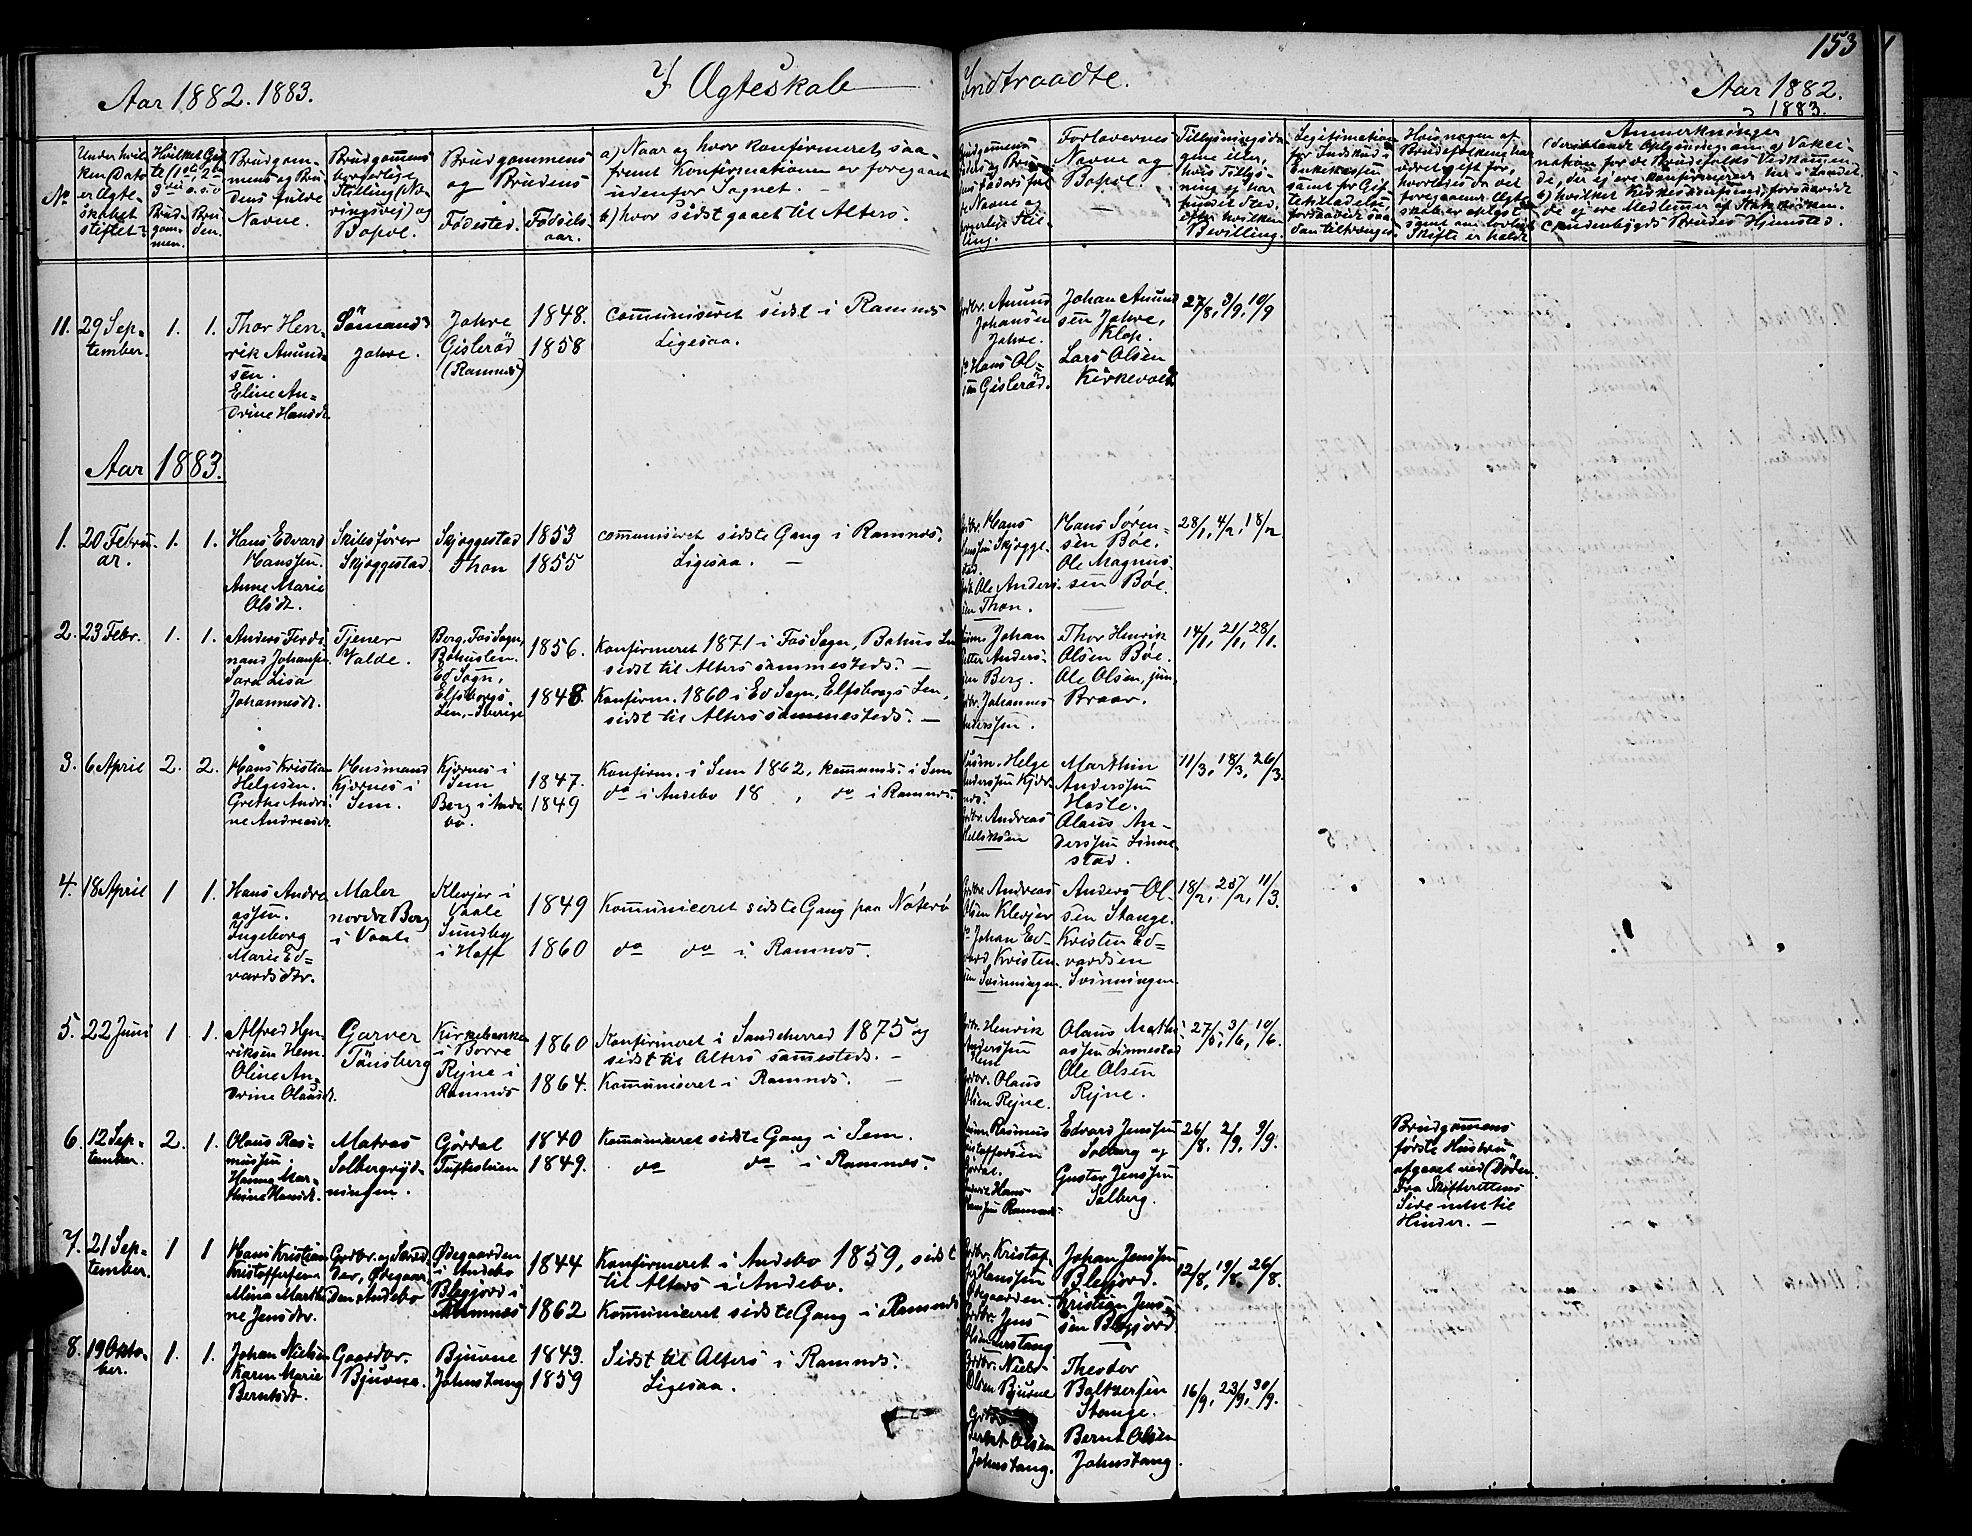 153
Aar 1882. 1883.
I Ægteskab
Indtraadte.
Aar 1882.
1883.
No
Under hvil-
ken Dato
er Ægte-
skabet
stiftet?
Hvilket Gif-
te (1ste 2det
3die o.s.v.
Brud-
gom-
men.
Bru-
den.
Brudgom-
mens og Bru-
dens fulde
Navne.
Brudgommens
borgerlige
Stilling (Næ-
ringsvej) og
Bopæl.
Brudgommens
og Brudens
Fødested.
Fødsels-
aar.
a) Naar og hvor konfirmeret, saa-
fremt Konfirmationen er foregaaet
udenfor Sognet.
b) hvor sidst gaaet til Alters.
Brudgommens
Navne og
borgerlige Stil-
ling.
Forlovernes
Navne og
Bopæl.
Tillysningsda-
gene eller,
hvis Tillys-
ning ej har
fundet Sted,
efter hvilken
Bevilling.
Legitimation
for Indskud i
Enkekassen
samt for Gif-
tetilladelse,
forsaavidt saa-
dan tiltrænges.
Hvis nogen af
Brudefolkene har
været gift før,
hvorledes da det
foregaaende Ægte-
skab er opløst,
samt om lovligt
Skifte er holdt
Anmerkninger
11. 29 Sep-
tember.
1. 1.
Thor Hen-
rik Amund-
sen.
Eline An-
drine Hansdt.
Sömand
Jahre.
Jahre
Gisleröd
(Ramnes)
1848.
1858
communiseret sidst i Ramnes
Ligesaa.
Grdbr. Amund
Johansen
Jahre.
do Hans Ol-
sen Gisleröd.
Johan Amund
sen Jahre,
Klop.
Lars Olsen
Kirkevold
27/8, 3/9, 10/9
Aar 1883.
1. 20 Febru-
ar.
1. 1.
Hans Edvard
Hanssen.
Anne Marie
Olsdt.
Skibsfører
Skjæggestad.
Skjæggestad
Thon
1853
1855
communiseret sidste Gang i Ramnes.
Ligesaa. —
Grdbr. Hans
Hanssen Skjægge-
stad.
Grdb. Ole Anders-
sen Thon.
Hans Søren-
sen Bøe.
Ole Magnus-
sen Bøe.
28/1, 4/2, 18/2
2. 23 Febr.
1. 1.
Anders Ferdi
nand Johansen
Sara Lisa
Johannesdt.
Tjener
Valde.
Borg, Fos Sogn,
Bohuslen.
Ed Sogn,
Elfsborgs
Len, - Sverige
1856.
1848.
Konfirmeret 1871 i Fos Sogn, Bohus Len
sidst til Alters sammesteds. —
Konfirm. 1860 i Ed Sogn, Elfsborgs Len,
sidst til Alters sammesteds. —
Johan
Petter Anders-
sen Berg.
Grdbr. Johannes
Anderssen.
Thor Henrik
Olsen Bøe.
Ole Olsen, jun
Braar.
14/1, 21/1, 28/1.
3. 6 April
2. 2.
Hans Kristian
Helgesen.
Grethe Andri-
ne Andreasdt.
Husmand
Kjærnes i
Sem.
Kjærnes i
Sem
Berg i Ande-
bo.
1847.
1849
Konfirm. i Sem 1862, kommuns. i Sem
do i Andebo 18 , do i Ramnes.
Husm. Helge
Anderssen Kjær-
nes.
Grdbr. Andreas
Ellefsen
Marthin
Anderssen
Hasle.
Olaus An-
derssen Linne-
stad.
11/3, 18/3, 26/3.
4. 18 April
1 1.
Hans Andre
assen.
Ingeborg
Marie Ed-
vardsdtr.
Maler
nordre Berg
i Vaale
Klevjer i
Vaale
Sundby
i Hoff
1849
1860
Kommuniceret sidste Gang paa Nøterø
do do i Ramnes.
Grdbr. Andreas
Olsen Klevjer
do Johan Ed-
vard Kristen-
sen Svinningen.
Anders Ol-
sen Stange.
Kristen Ed-
vardsen
Svinningen.
18/2, 25/2, 11/3.
5. 22 Juni
1 1.
Alfred Hen-
riksen Hem.
Oline An-
drine Olausdt.
Garver
Tönsberg
Kirkebakken
i Borre
Rejne i
Ramnes
1860
1864.
Konfirmeret i Sandeherred 1875 og
sidst til Alters sammesteds. —
Kommuniseret i Ramnes. —
Grdbr. Henrik
Anderssen
Hem
Grdbr. Olaus
Olsen Rejne.
Olaus Mathi-
assen Linnestad
Ole Olsen
Rejne.
27/5, 3/6, 10/6.
6. 12 Sep-
tember.
2. 1.
Olaus Ras-
mussen.
Hanna Mar-
thine Hansdt.
Matros
Solbergryd-
ningen.
Gördal
Tufteskien
1840
1849.
Kommuniseret sidste Gang i Sem.
do do i Ramnes.
Rasmus
Kristoffersen
Gördal.
Hans
Hanssen Ramnes.
Edvard Jenssen
Solberg og
Gustav Jenssen
Solberg.
26/8, 2/9, 9/9.
Brudgommens
første Hustru
afgaaet ved Døden.
Fra Skifterettens
Side intet til
Hinder. —
7. 21 Sep-
tember.
1 1
Hans Kristian
Kristoffersen
Mina Marthi-
ne Jensdtr.
Grdbr. og Smed
Ødegaar-
den Andebo
Ødegaarden
i Andebo
Blegjord i
Ramnes
1844
1862
Konfirmeret i Andebo 1859, sidst
til Alters i Andebo.
Kommuniceret sidste Gang i Ramnes.
Grdbr. Kristof-
fer Hanssen
Ødegaarden.
Grdbr. Jens
Olsen
Johan Jenssen
Blegjord.
Kristian Jens-
sen Blegjord
12/8, 19/8, 26/8.
8. 19 Okto-
ber.
1. 1.
Johan Nielsen
Karen Marie
Berntsdt.
Gaardbr.
Bjuvne.
Bjuvne
Johnstang
1843.
1859
Sidst til Alters i Ramnes.
Ligesaa.
Grdbr. Niels
Olsen Bjuvne
Grdbr.
Bernt Olsen
Johnstang.
Theodor
Baltzersen
Stange.
Bernt Olsen
Johnstang.
16/9, 23/9, 30/9.